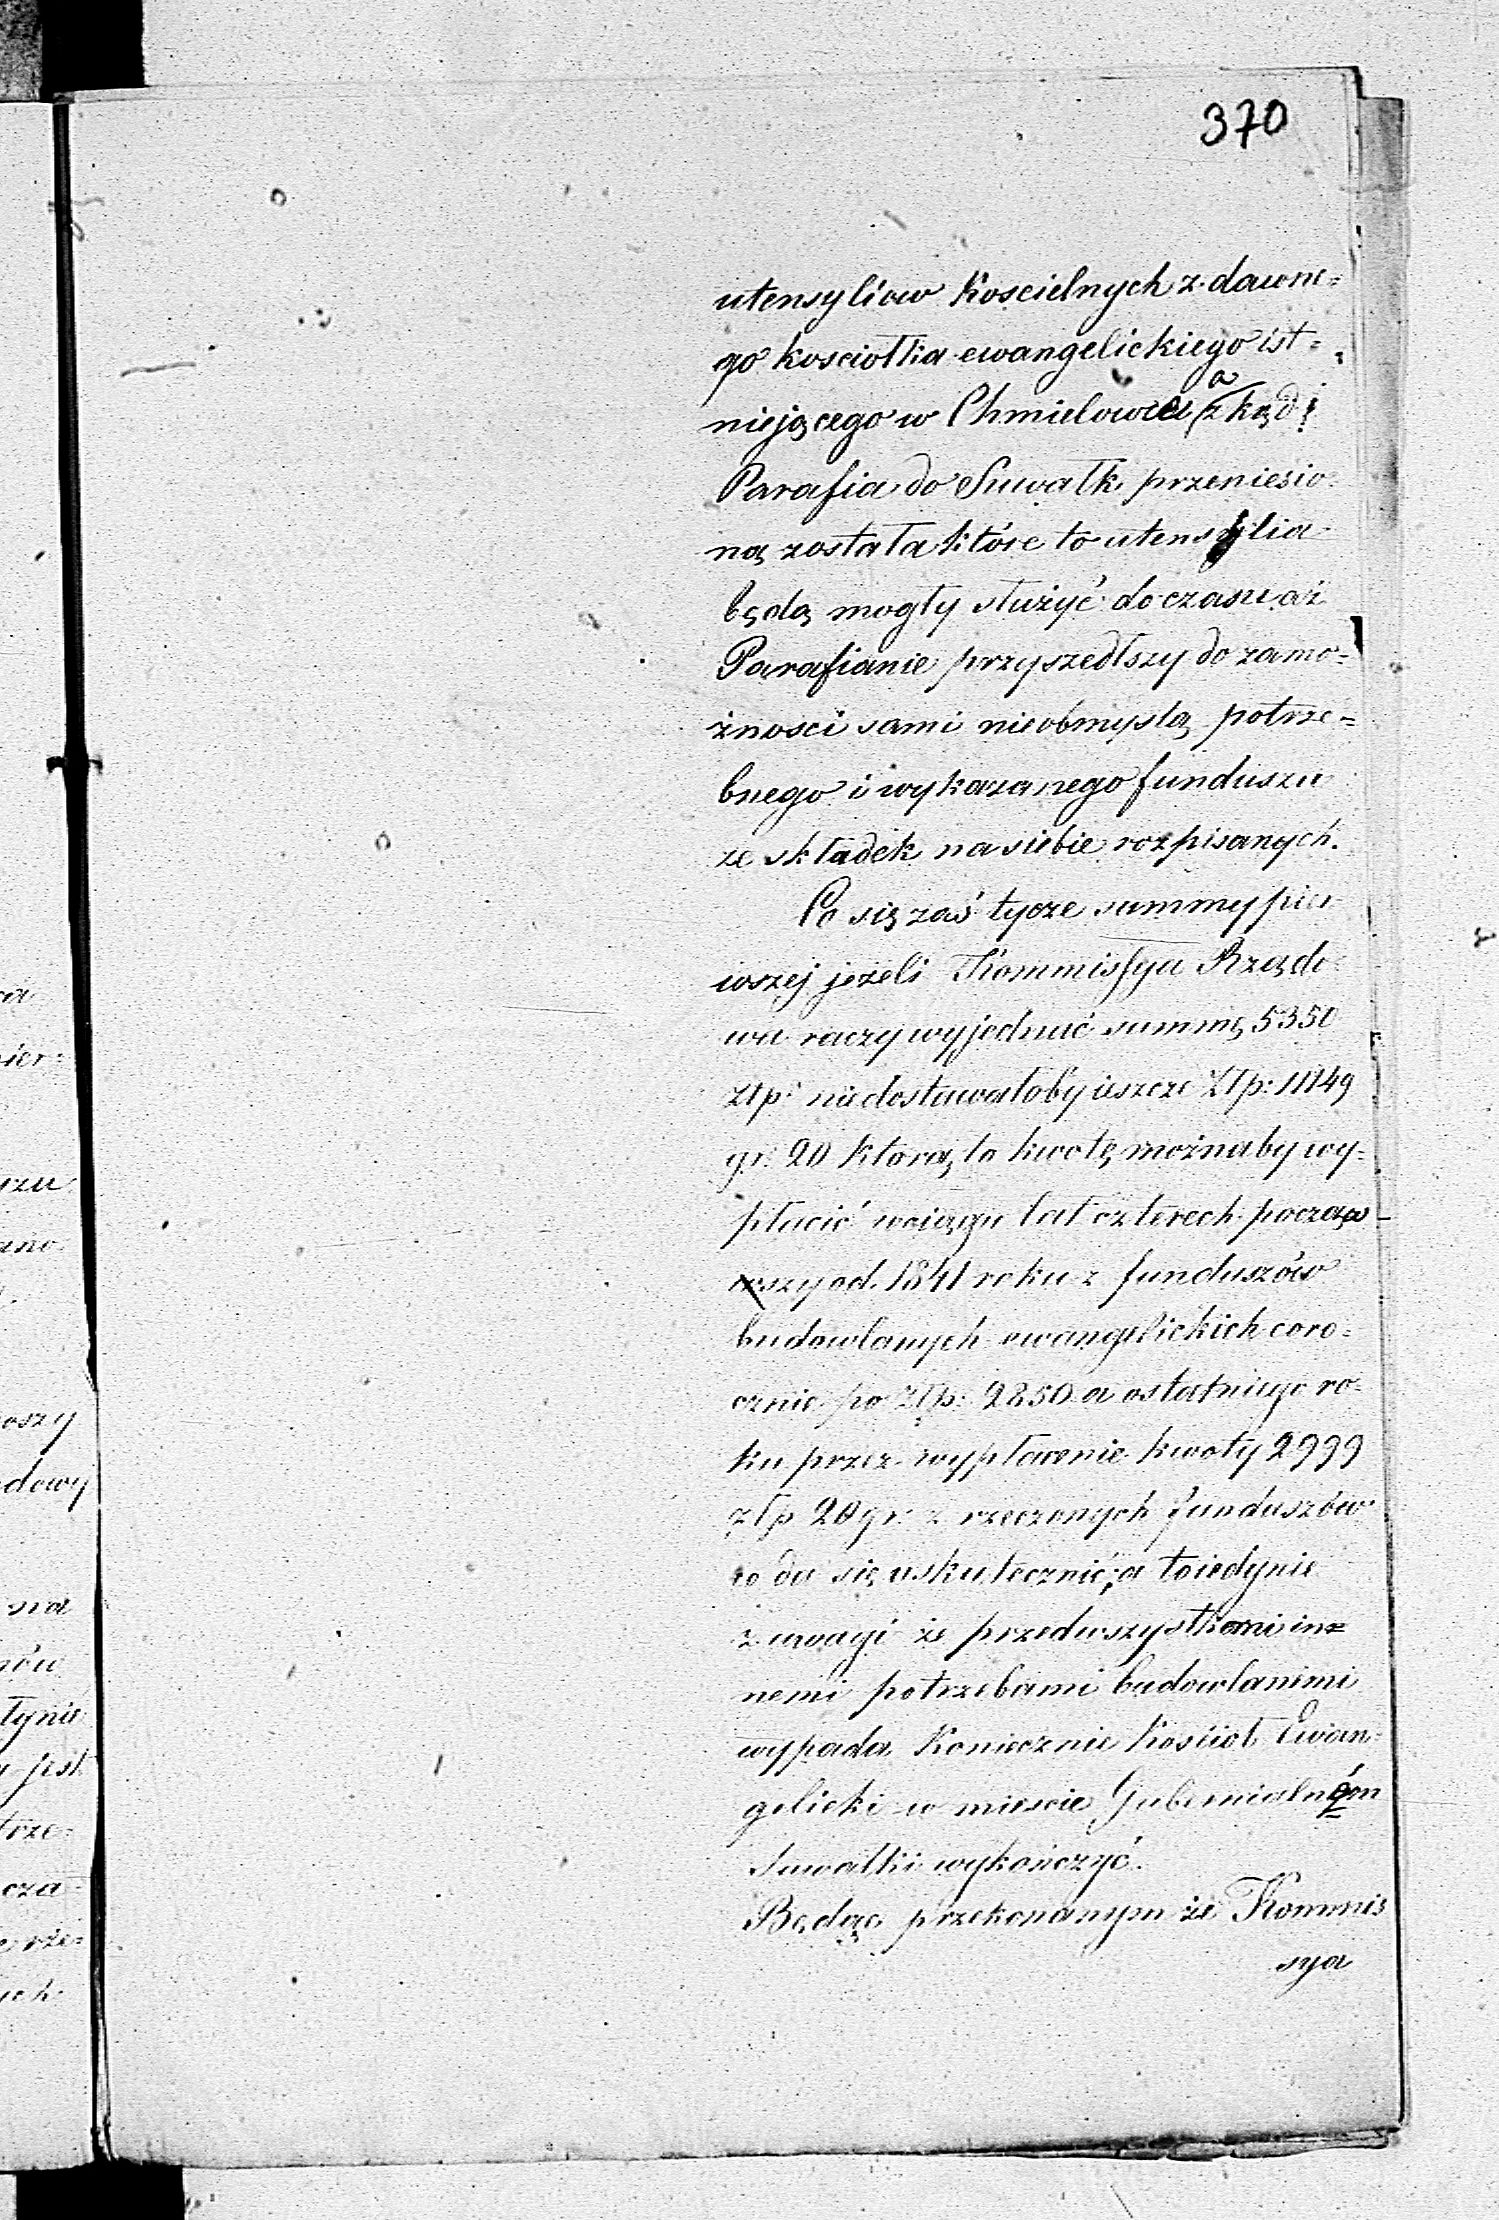 370
utensyliow Koscielnych z dawne=
go kosciołka ewangelickiego ist=
niejącego w Chmielowce a zkąd
Parafia do Suwałk przeniesio
ną została które to utensylia
będą mogły służyć do czasu aż
Parafianie przyszedłszy do zamo=
żnosci sami nieobmyslą potrze=
bnego i wykazanego funduszu
ze składek na siebie rozpisanych.
Co się zaś tycze summy pier
wszej jeżeli Kommissya Rządo
wa raczy wyjednać summę 5350
złp: niedostawałoby ieszcze Złp: 11149
gr: 20 którą to kwotę możnaby wy=
płacić wciągu lat czterech począw-
szy od 1841 roku z funduszów
budowlanych ewangelickich coro=
cznie po Złp: 2850 a ostatniego ro=
ku przez wypłacenie kwoty 2999
złp 20 gr: z rzeczonych funduszów
co da się uskutecznić; a to iedynie
z uwagi że przedwszystkemi in=
nemi potrzebami budowlanemi
wypada Koniecznie Kościoł Ewan=
gelicki w miescie Gubernialném
Suwałki wykończyć.
Będąc przekonanym że Kommis
sya
ier=
rzu
ano
oszy
dowy
na
nów
tynie
jest
trze=
cza
rze=
ych